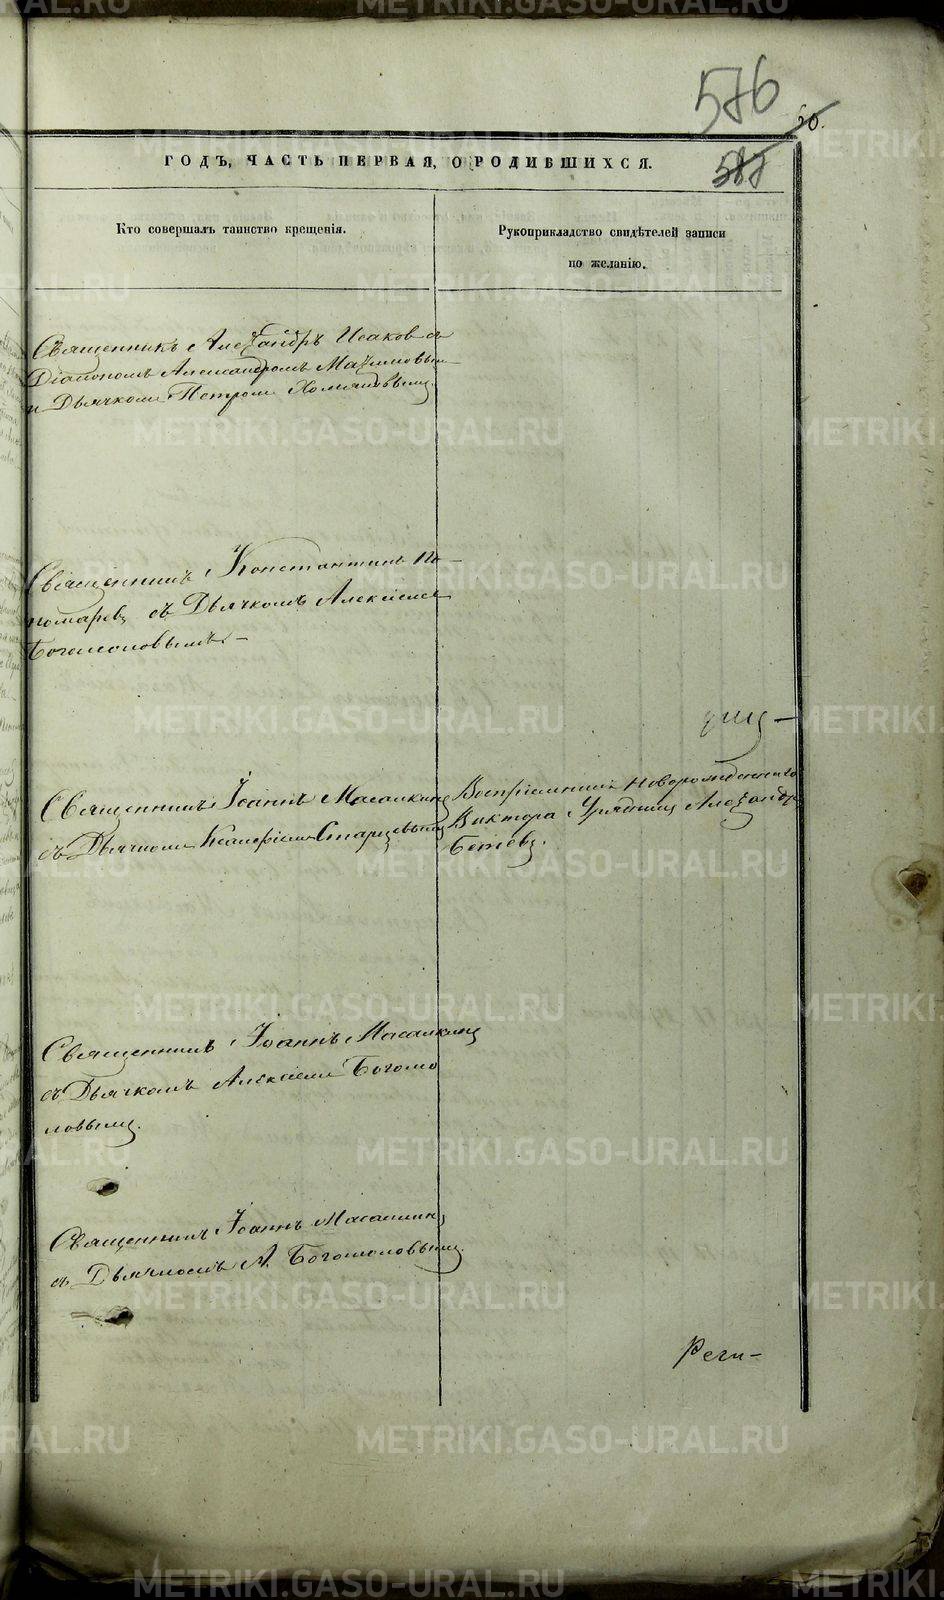 576
50.
587
ГОДЪ, ЧАСТЬ ПЕРВАЯ, О РОДИВШИХСЯ.
Кто совершалъ таинство крещенія.
Рукоприкладство свидѣтелей записи
по желанію.
Священникъ Александръ Исаковъ съ
Діакономъ Александромъ
и Дьячкомъ Петромъ Хомяковымъ.
Священникъ Константинъ По-
номаревъ съ Дьячкомъ Алексіемъ
Богомоловымъ. —
Священникъ Іоаннъ Масалкинъ
съ Дьячкомъ Старцевымъ
Воспріемникъ Новорожденнаго
Виктора Урядникъ Александръ
Священникъ Іоаннъ Масалкинъ
съ Дьячкомъ Алексіемъ Богомо
ловымъ.
Священникъ Іоаннъ Масалкинъ
съ Дьячкомъ А. Богомоловымъ.
METRIKI.GASO-URAL.RU